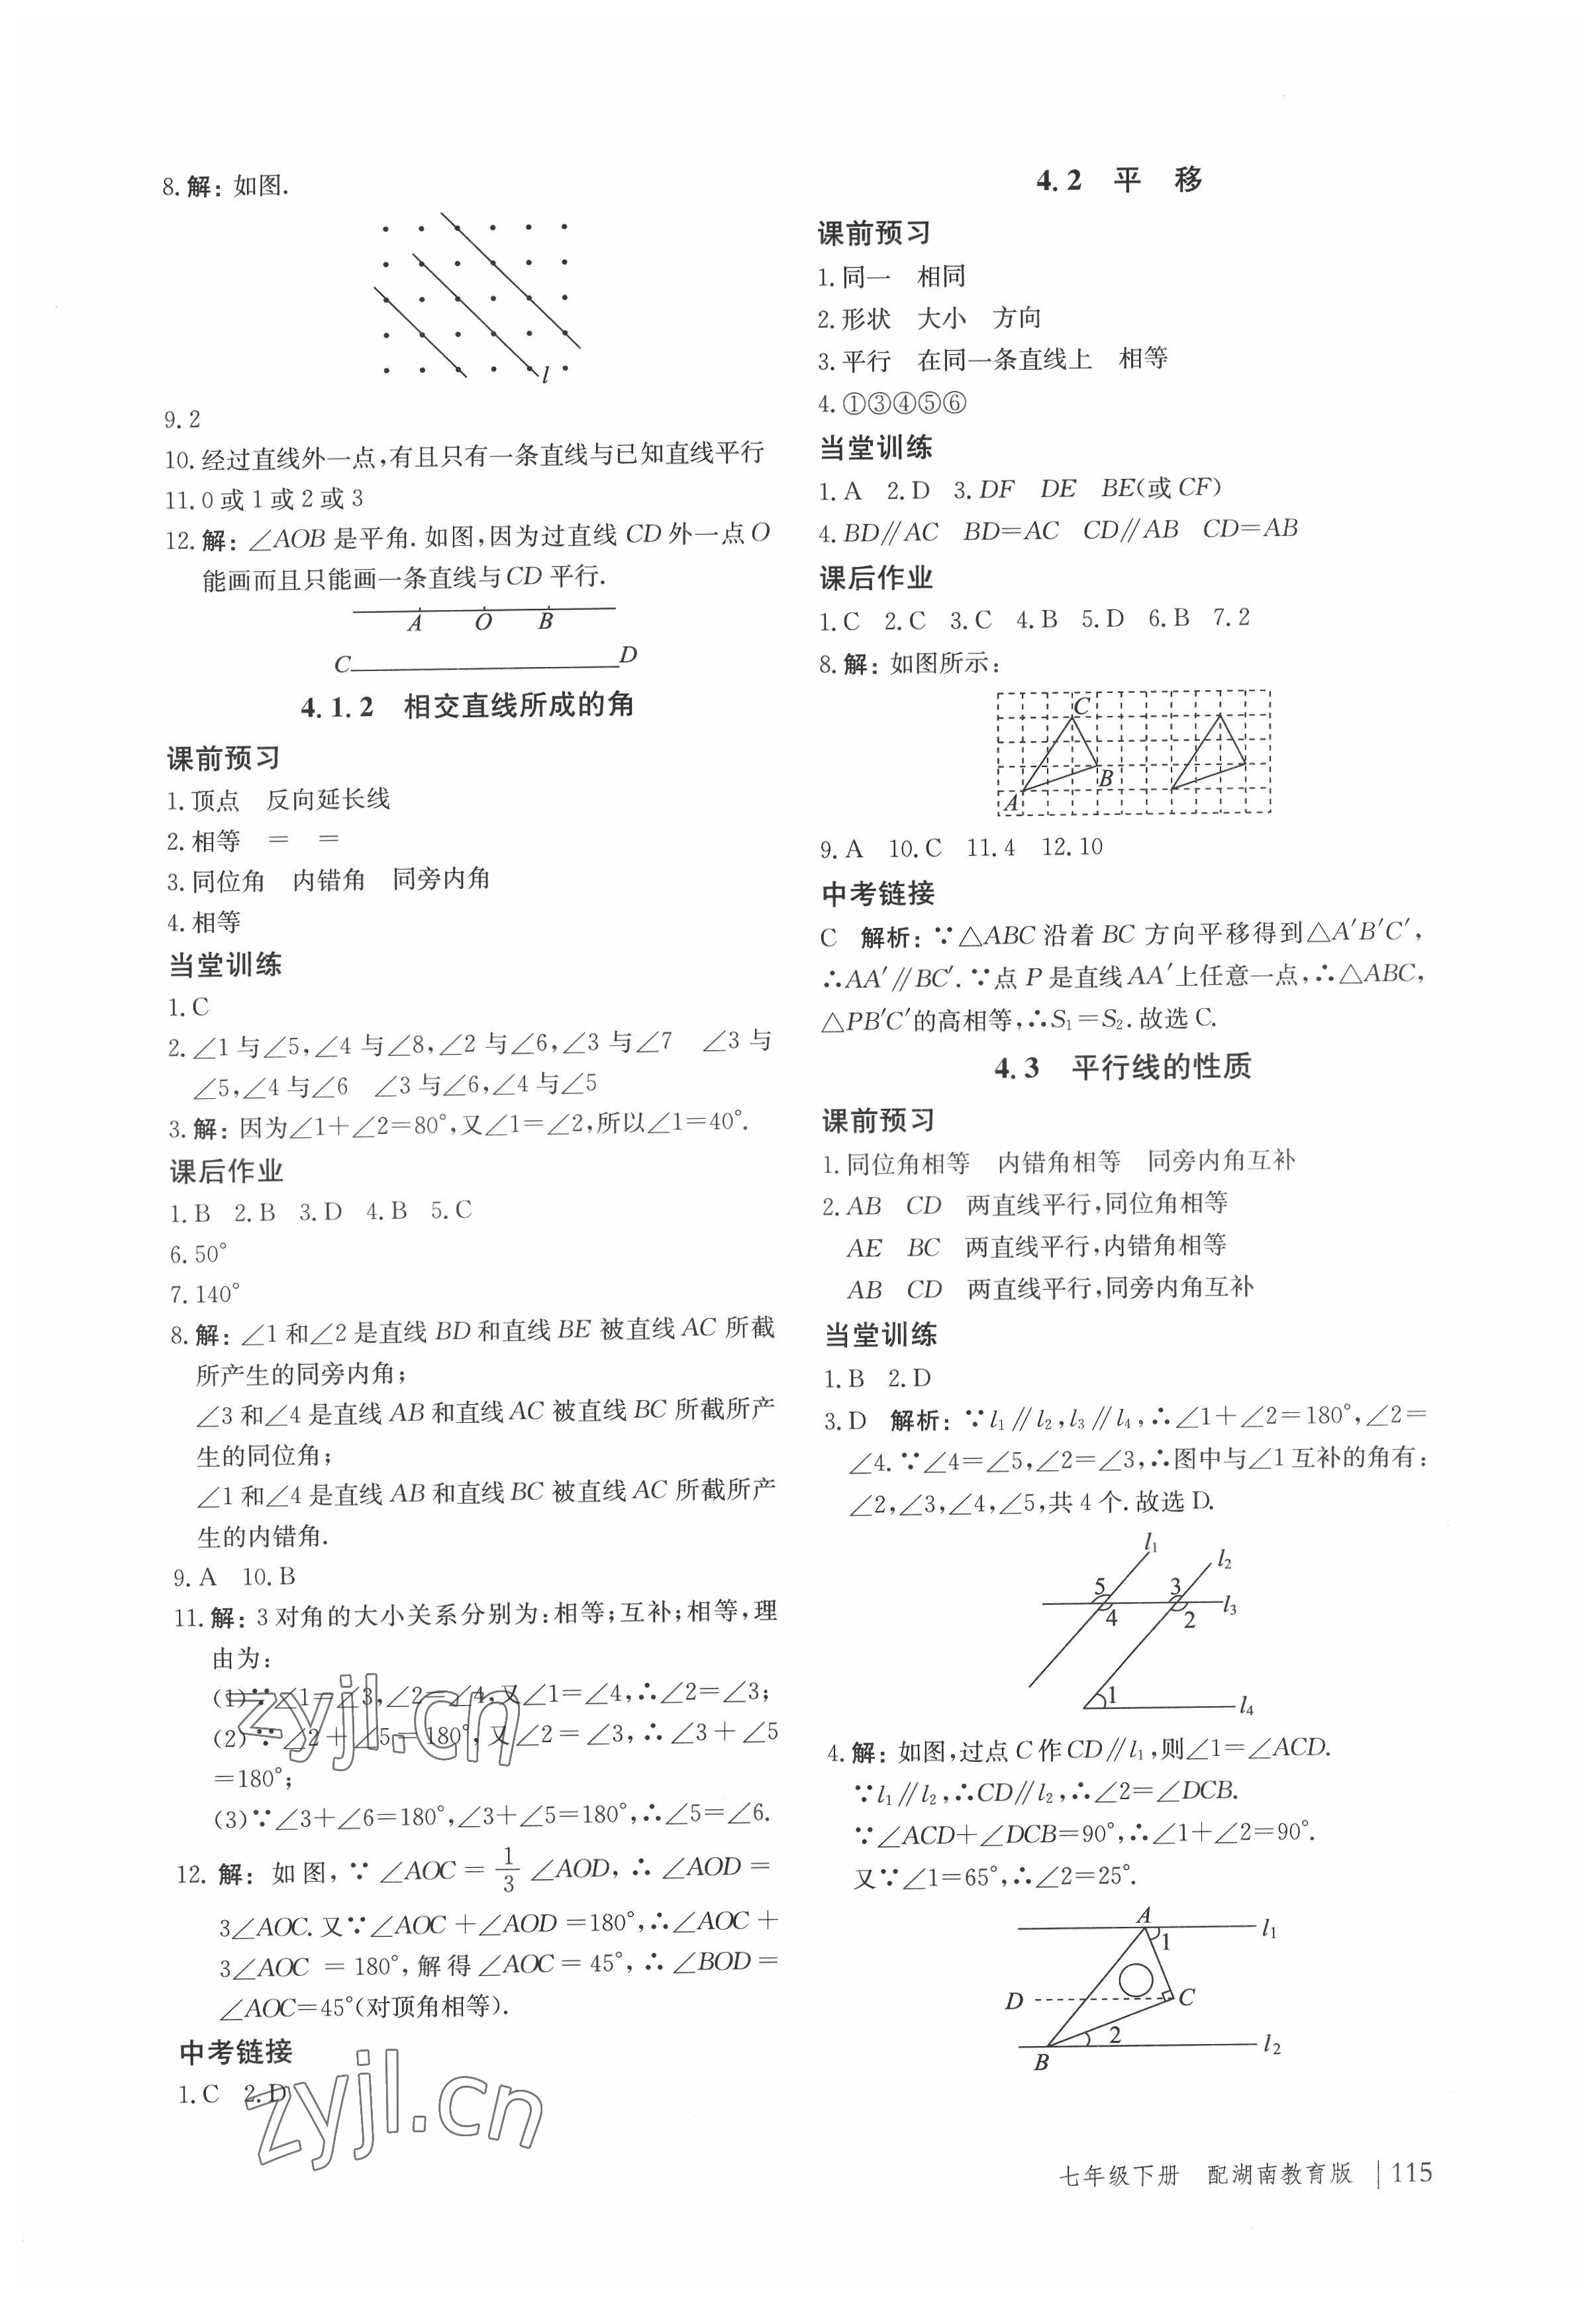 8.解：如图.
l
9.2
10.经过直线外一点,有且只有一条直线与已知直线平行
11.0或1或2或3
12.解：∠AOB是平角.如图,因为过直线CD外一点O
能画而且只能画一条直线与CD平行.
A O B
C D
4.1.2 相交直线所成的角
课前预习
1.顶点 反向延长线
2.相等 = =
3.同位角 内错角 同旁内角
4.相等
当堂训练
1.C
2.∠1与∠5,∠4与∠8,∠2与∠6,∠3与∠7 ∠3与
∠5,∠4与∠6 ∠3与∠6,∠4与∠5
3.解：因为∠1+∠2=80°,又∠1=∠2,所以∠1=40°.
课后作业
1.B 2.B 3.D 4.B 5.C
6.50°
7.140°
8.解：∠1和∠2是直线BD和直线BE被直线AC所截
所产生的同旁内角;
∠3和∠4是直线AB和直线AC被直线BC所截所产
生的同位角;
∠1和∠4是直线AB和直线BC被直线AC所截所产
生的内错角.
9.A 10.B
11.解：3对角的大小关系分别为:相等;互补;相等,理
由为:
(1)∵∠1=∠3,∠2=∠4,又∠1=∠4,∴∠2=∠3;
(2)∵∠2+∠5=180°,又∠2=∠3,∴∠3+∠5
=180°;
(3)∵∠3+∠6=180°,∠3+∠5=180°,∴∠5=∠6.
12.解：如图,∵∠AOC=1/3∠AOD,∴∠AOD=
3∠AOC.又∵∠AOC+∠AOD=180°,∴∠AOC+
3∠AOC=180°,解得∠AOC=45°,∴∠BOD=
∠AOC=45°(对顶角相等).
中考链接
1.C 2.D
zyjl.cn
zyjl.cn
4.2 平 移
课前预习
1.同一 相同
2.形状 大小 方向
3.平行 在同一条直线上 相等
4.①③④⑤⑥
当堂训练
1.A 2.D 3.DF DE BE(或CF)
4.BD∥AC BD=AC CD∥AB CD=AB
课后作业
1.C 2.C 3.C 4.B 5.D 6.B 7.2
8.解：如图所示:
C
B
A
9.A 10.C 11.4 12.10
中考链接
C 解析：∵△ABC沿着BC方向平移得到△A′B′C′,
∴AA′∥BC′.∵点P是直线AA′上任意一点,∴△ABC,
△PB′C′的高相等,∴S₁=S₂.故选C.
4.3 平行线的性质
课前预习
1.同位角相等 内错角相等 同旁内角互补
2.AB CD 两直线平行,同位角相等
AE BC 两直线平行,内错角相等
AB CD 两直线平行,同旁内角互补
当堂训练
1.B 2.D
3.D 解析：∵l₁∥l₂,l₃∥l₄,∴∠1+∠2=180°,∠2=
∠4.∵∠4=∠5,∠2=∠3,∴图中与∠1互补的角有:
∠2,∠3,∠4,∠5,共4个.故选D.
l₁
l₂
5 3
l₃
4 2
1
l₄
4.解：如图,过点C作CD∥l₁,则∠1=∠ACD.
∵l₁∥l₂,∴CD∥l₂,∴∠2=∠DCB.
∵∠ACD+∠DCB=90°,∴∠1+∠2=90°.
又∵∠1=65°,∴∠2=25°.
A
l₁
1
D C
2
l₂
B
七年级下册 配湖南教育版 | 115